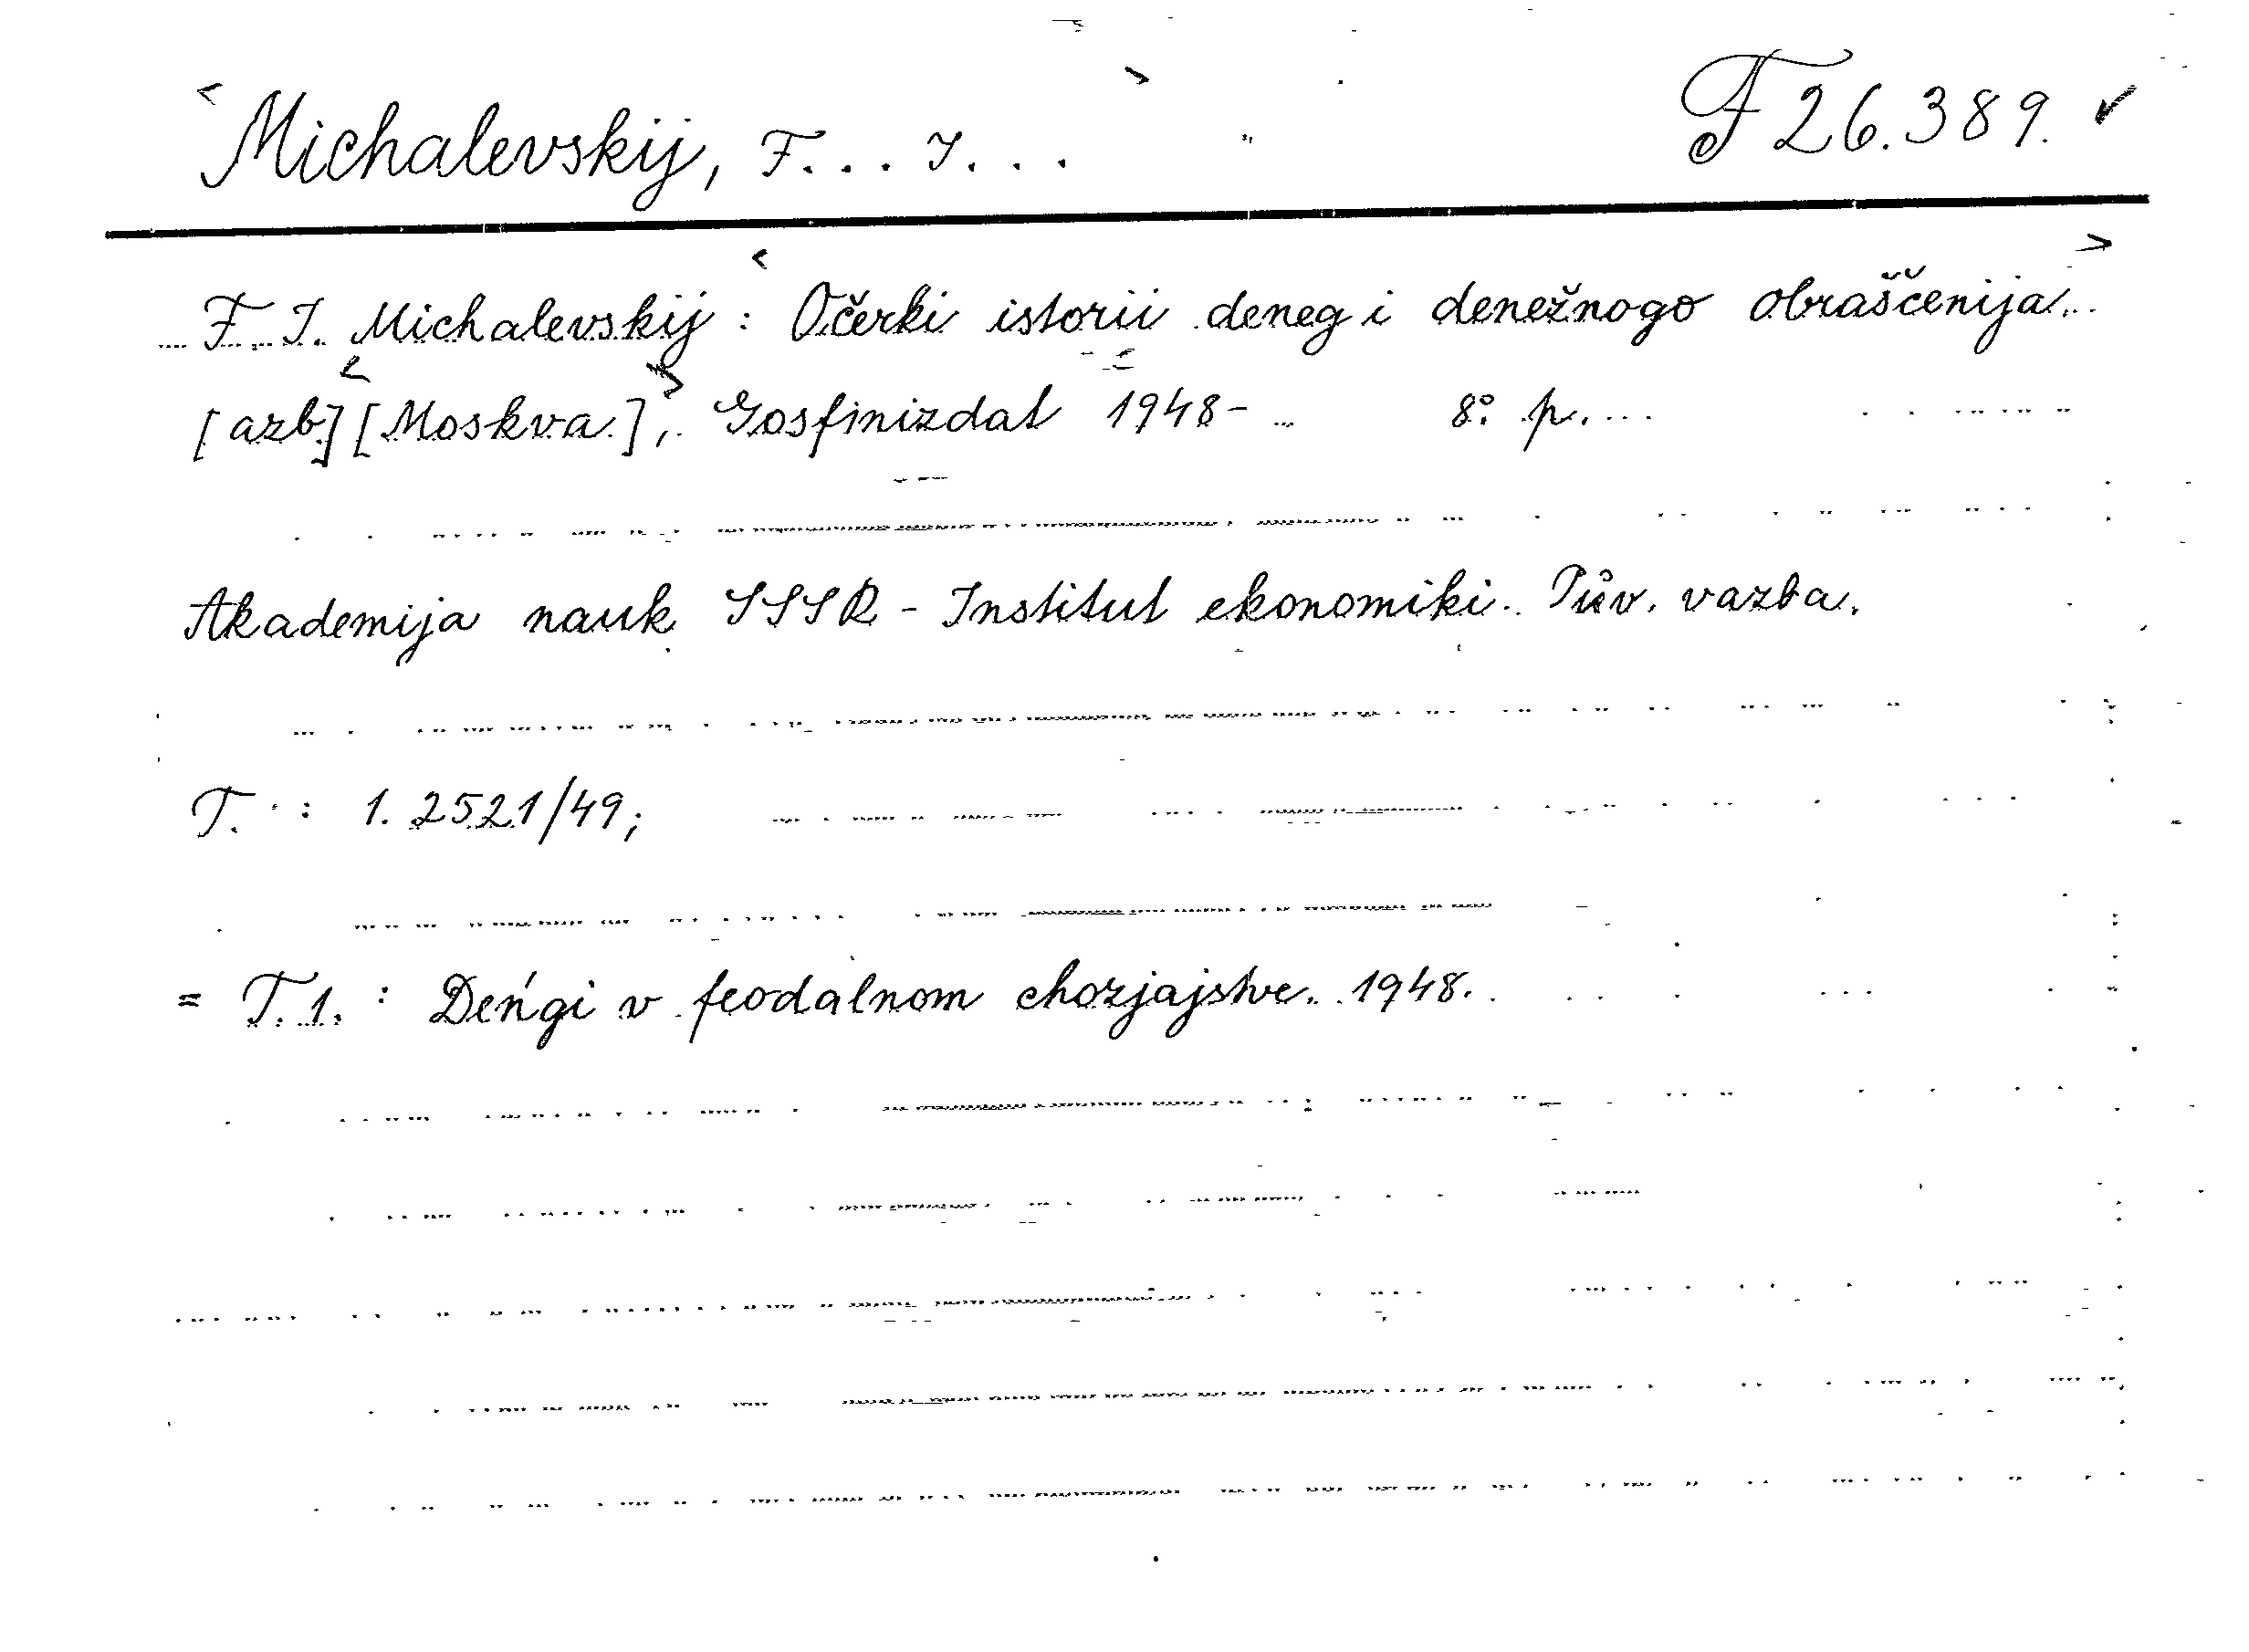 <Michalevskij, F... I...> F 26.389. ✓
F. I. Michalevskij: <Očerki istorii deneg i denežnogo obraščenija.>
[azb.] <[Moskva]>, Gosfinizdat 1948- 8° p.
Akademija nauk SSSR - Institut ekonomiki. Pův. vazba.
T. : 1. 2521/49;
= T. 1. : Deńgi v feodalnom chozjajstve. 1948.